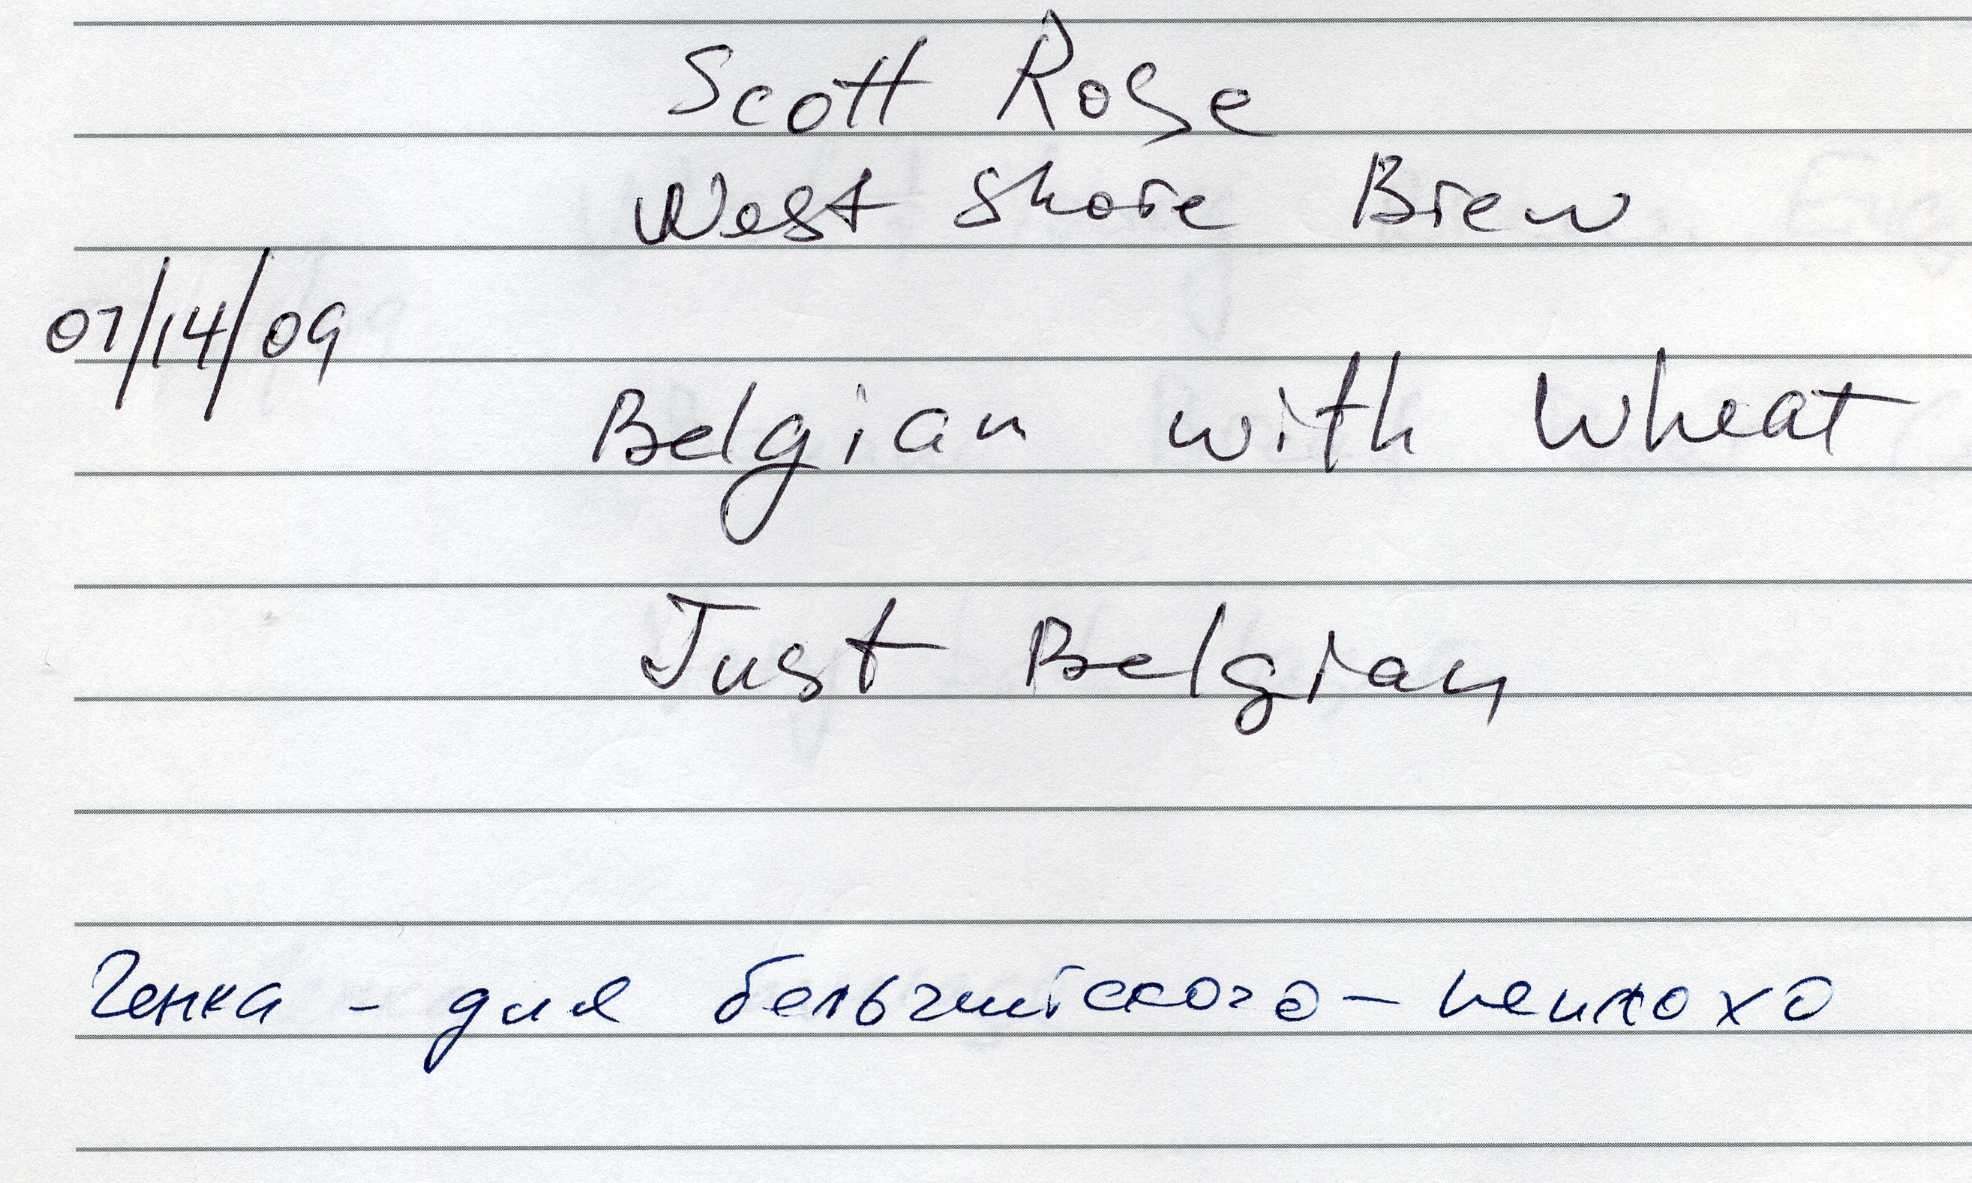 Scott Rose
West Shore Brew
07/14/09
Belgian with Wheat
Just Belgian
Генка - для бельгийского - неплохо